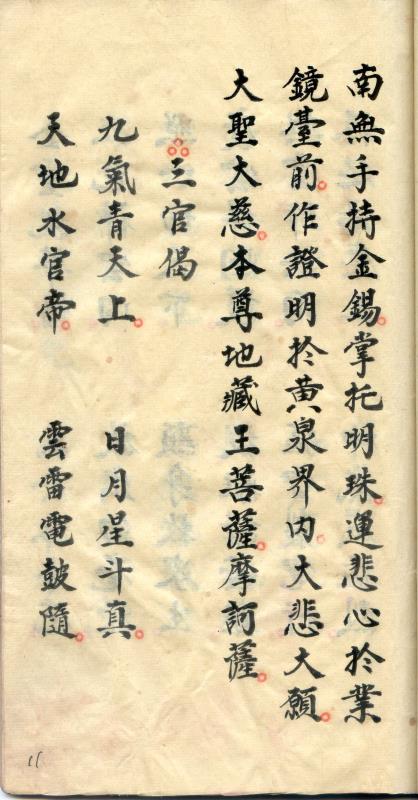 南無手持金錫。掌托明珠。運悲心於業
鏡臺前。作證明於黃泉界內。大悲大願。
大聖大慈。本尊地藏王菩薩。摩訶薩。
三官偈
九氣青天上。 日月星斗真。
天地水官帝。 雲雷電鼓隨。
11